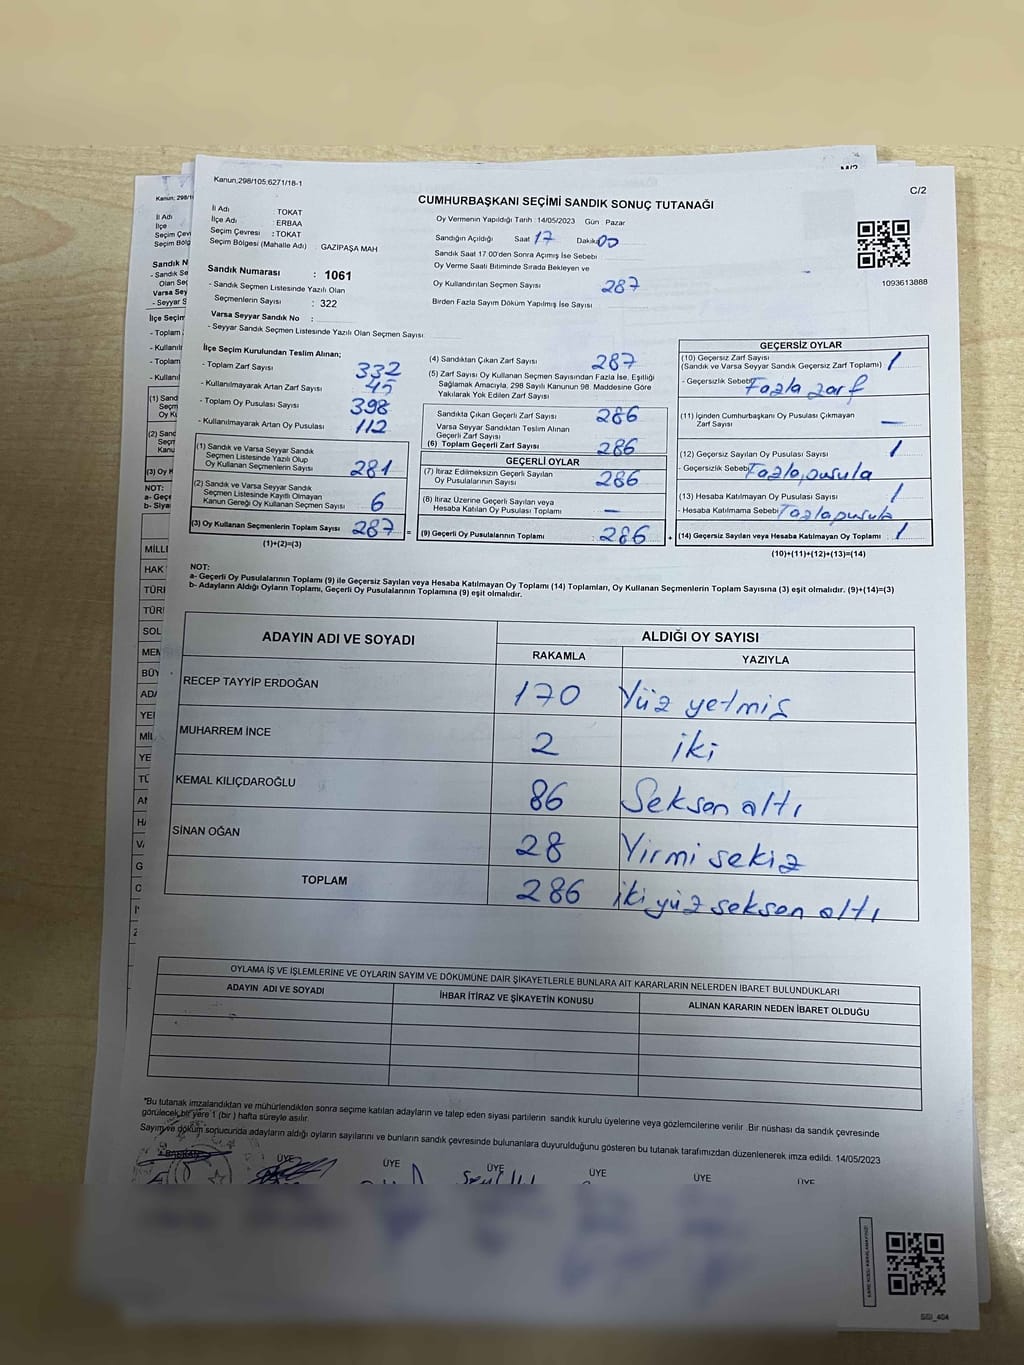 Kanun,298/105,6271/18-1
C/2
CUMHURBAŞKANI SEÇİMİ SANDIK SONUÇ TUTANAĞI
İl Adı : TOKAT
İlçe Adı : ERBAA
Seçim Çevresi : TOKAT
Seçim Bölgesi (Mahalle Adı) GAZİPAŞA MAH
Sandık Numarası : 1061
- Sandık Seçmen Listesinde Yazılı Olan
Seçmenlerin Sayısı : 322
Varsa Seyyar Sandık No :
- Seyyar Sandık Seçmen Listesinde Yazılı Olan Seçmen Sayısı:
Oy Vermenin Yapıldığı Tarih :14/05/2023 Gün : Pazar
Sandığın Açıldığı Saat 17 Dakika 00
Sandık Saat 17:00'den Sonra Açımış İse Sebebi
Oy Verme Saati Bitiminde Sırada Bekleyen ve
Oy Kullandırılan Seçmen Sayısı 287
Birden Fazla Sayım Döküm Yapılmış İse Sayısı
1093613888
İlçe Seçim Kurulundan Teslim Alınan;
- Toplam Zarf Sayısı 332
- Kullanılmayarak Artan Zarf Sayısı 45
- Toplam Oy Pusulası Sayısı 398
- Kullanılmayarak Artan Oy Pusulası 112
(1) Sandık ve Varsa Seyyar Sandık
Seçmen Listesinde Yazılı Olup
Oy Kullanan Seçmenlerin Sayısı 281
(2) Sandık ve Varsa Seyyar Sandık
Seçmen Listesinde Kayıtlı Olmayan
Kanun Gereği Oy Kullanan Seçmen Sayısı 6
(3) Oy Kullanan Seçmenlerin Toplam Sayısı 287 =
(1)+(2)=(3)
(4) Sandıktan Çıkan Zarf Sayısı 287
(5) Zarf Sayısı Oy Kullanan Seçmen Sayısından Fazla İse, Eşitliği
Sağlamak Amacıyla, 298 Sayılı Kanunun 98. Maddesine Göre
Yakılarak Yok Edilen Zarf Sayısı
Sandıkta Çıkan Geçerli Zarf Sayısı 286
Varsa Seyyar Sandıktan Teslim Alınan
Geçerli Zarf Sayısı
(6) Toplam Geçerli Zarf Sayısı 286
GEÇERLİ OYLAR
(7) İtiraz Edilmeksizin Geçerli Sayılan
Oy Pusulalarının Sayısı 286
(8) İtiraz Üzerine Geçerli Sayılan veya
Hesaba Katılan Oy Pusulası Toplamı —
(9) Geçerli Oy Pusulalarının Toplamı : 286 +
GEÇERSİZ OYLAR
(10) Geçersiz Zarf Sayısı
(Sandık ve Varsa Seyyar Sandık Geçersiz Zarf Toplamı) 1
- Geçersizlik Sebebi Fazla zarf
(11) İçinden Cumhurbaşkanı Oy Pusulası Çıkmayan
Zarf Sayısı —
(12) Geçersiz Oy Pusulası Sayısı 1
- Geçersizlik Sebebi Fazla pusula
(13) Hesaba Katılmayan Oy Pusulası Sayısı 1
- Hesaba Katılmama Sebebi Fazla pusula
(14) Geçersiz Sayılan veya Hesaba Katılmayan Oy Toplamı : 1
(10)+(11)+(12)+(13)=(14)
NOT:
a- Geçerli Oy Pusulalarının Toplamı (9) ile Geçersiz Sayılan veya Hesaba Katılmayan Oy Toplamı (14) Toplamları, Oy Kullanan Seçmenlerin Toplam Sayısına (3) eşit olmalıdır. (9)+(14)=(3)
b- Adayların Aldığı Oyların Toplamı, Geçerli Oy Pusulalarının Toplamına (9) eşit olmalıdır.
ADAYIN ADI VE SOYADI ALDIĞI OY SAYISI
RAKAMLA YAZIYLA
RECEP TAYYİP ERDOĞAN 170 Yüz yetmiş
MUHARREM İNCE 2 iki
KEMAL KILIÇDAROĞLU 86 Seksen altı
SİNAN OĞAN 28 Yirmi sekiz
TOPLAM 286 iki yüz seksen altı
OYLAMA İŞ VE İŞLEMLERİNE VE OYLARIN SAYIM VE DÖKÜMÜNE DAİR ŞİKAYETLERLE BUNLARA AİT KARARLARIN NELERDEN İBARET BULUNDUKLARI
ADAYIN ADI VE SOYADI İHBAR İTİRAZ VE ŞİKAYETİN KONUSU ALINAN KARARIN NEDEN İBARET OLDUĞU
"Bu tutanak imzalandıktan ve mühürlendikten sonra seçime katılan adayların ve talep eden siyasi partilerin sandık kurulu üyelerine veya gözlemcilerine verilir .Bir nüshası da sandık çevresinde
görülecek bir yere 1 (bir ) hafta süreyle asılır.
Sayım ve döküm sonucunda adayların aldığı oyların sayılarını ve bunların sandık çevresinde bulunanlara duyurulduğunu gösteren bu tutanak tarafımızdan düzenlenerek imza edildi. 14/05/2023
BAŞKAN ÜYE ÜYE ÜYE ÜYE ÜYE ÜYE